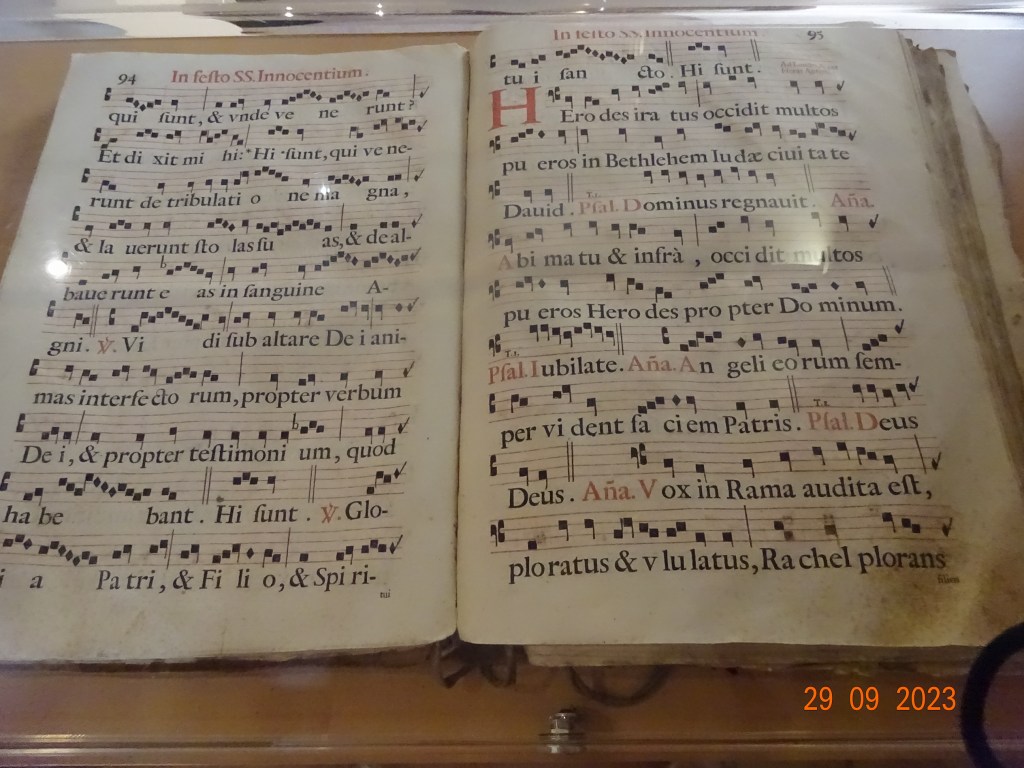 94 In festo SS. Innocentium.
qui ſunt, & vnde ve ne runt?
Et di xit mi hi: Hi ſunt, qui ve ne-
runt de tribulati o ne ma gna,
& la uerunt ſto las ſu as, & deal-
baue runt e as in ſanguine A-
gni. ℣. Vi di ſub altare De i ani-
mas interfe cto rum, propter verbum
De i, & propter teſtimoni um, quod
ha be bant. Hi ſunt. ℣. Glo-
i a Pa tri, & Fi li o, & Spi ri-
tui
In feſto SS. Innocentium 95
tu i ſan cto. Hi ſunt.
HErodes ira tus occidit multos
pu eros in Bethlehem Iudæ ciui ta te
Dauid. Pſal. Dominus regnauit. Aña.
A bi ma tu & infrà, occi dit multos
pu eros Hero des pro pter Do minum.
Pſal. Iubilate. Aña. An geli eorum ſem-
per vi dent fa ciem Patris. Pſal. Deus
Deus. Aña. Vox in Rama audita eſt,
plo ratus & v lu latus, Ra chel plorans
filios
29 09 2023